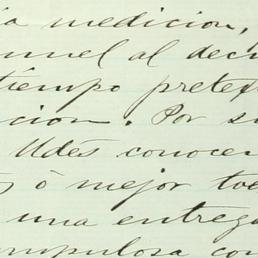 ia medicion,
nnel al deci
tiempo pretex
icion. Por su
Udes conocen
ó mejor tod
una entrega
mpulosa con